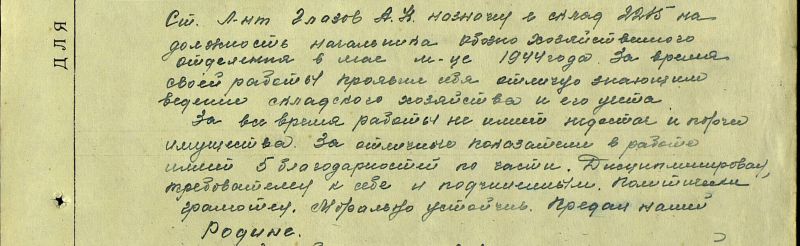 ДЛЯ
Ст. л-нт Глазов А.К. назначен в склад 2215 на
должность начальника Обозно хозяйственного
отделения в мае м-це 1944 года. За время
своей работы проявил себя отлично знающим
ведение складского хозяйства и его учета.
За все время работы не имеет недостач и порчи
имущества. За отличные показатели в работе
имеет 5 благодарностей по части. Дисциплинирован,
требователен к себе и подчиненным. Политически
грамотен. Морально устойчив. Предан нашей
Родине.